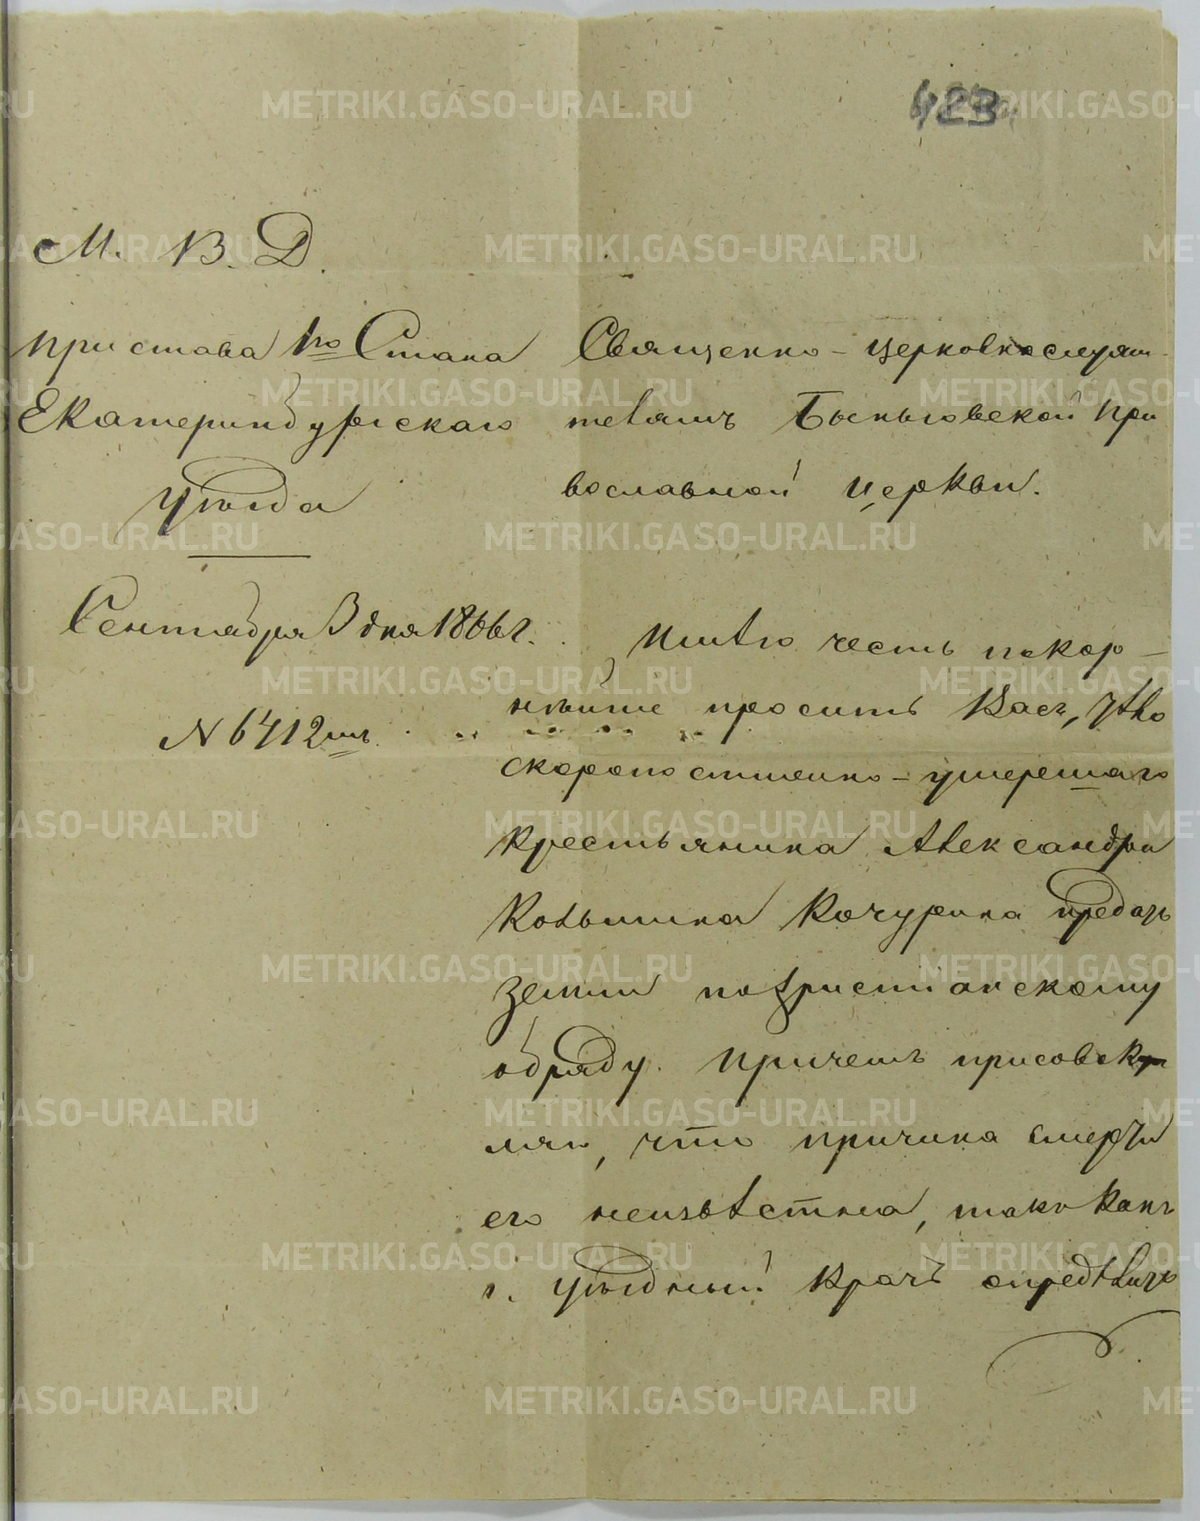 423
М. В. Д.
Пристава 1го Стана
Екатеринбургскаго
Уѣзда
Сентября 3 дня 1866 г.
№ 6412
Священно-церковнослужи-
телямъ Быньговской пра
вославной церкви.
Имѣю честь покор-
нѣйше просить Васъ, тѣло
скоропостижно-умершаго
крестьянина Александра
Козьмина Качурина предать
земли по христианскому
обряду. Причемъ присовокуп
ляю, что причина смерти
его неизвѣстна, такъ какъ
г. уѣздный врачъ опредѣлить
METRIKI.GASO-URAL.RU